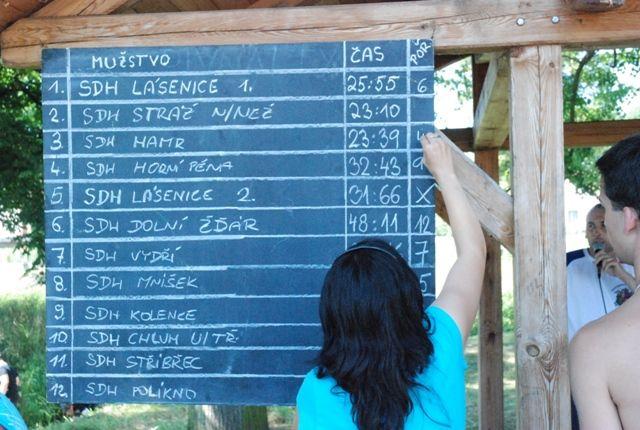 MUŽSTVO ČAS POŘ
1. SDH LÁSENICE 1. 25:55 6
2. SDH STRÁŽ N/NEŽ 23:10
3. SDH HAMR 23:39
4. SDH HORNÍ PĚNA 32:43 9
5. SDH LÁSENICE 2. 31:66 X
6. SDH DOLNÍ ŽĎÁR 48:11 12
7. SDH VYDŘÍ 7
8. SDH MNIŠEK 5
9. SDH KOLENCE
10. SDH CHLUM U/TŘ.
11. SDH STŘÍBŘEC
12. SDH POLIKNO